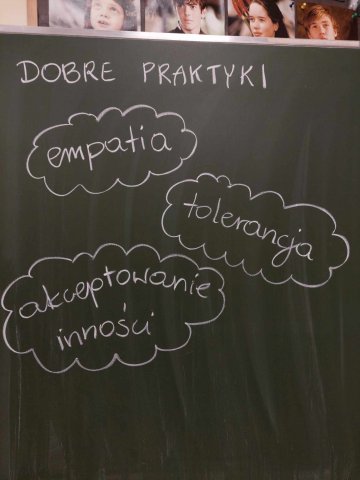 DOBRE PRAKTYKI
empatia
tolerancja
akceptowanie
inności